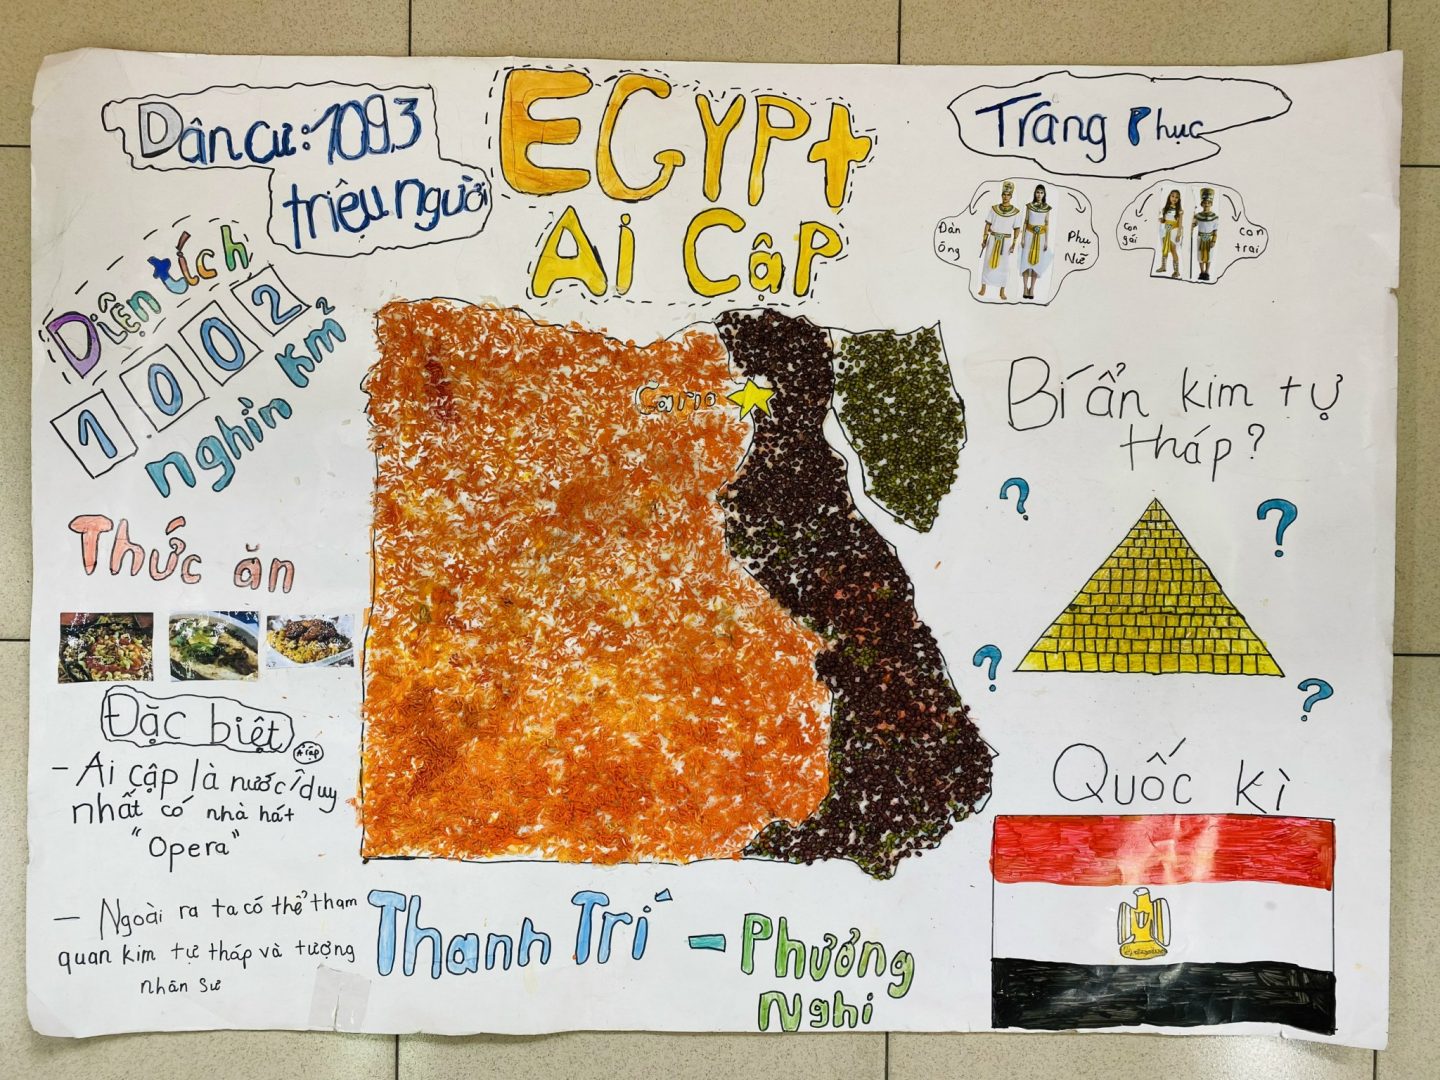 EGYPt
Ai Cập
Dân cư: 109,3
triệu người
Diện tích
1002
nghìn km²
Thức ăn
Đặc biệt
- Ai cập là nước Ả rập duy
nhất có nhà hát
"Opera"
- Ngoài ra ta có thể tham
quan kim tự tháp và tượng
nhân sư
Cario
Thanh Trí - Phưởng
Nghi
Trang Phục
Đàn
ông
Phụ
Nữ
Con
gái
con
trai
Bí ẩn kim tự
tháp?
?
?
?
?
Quốc kì